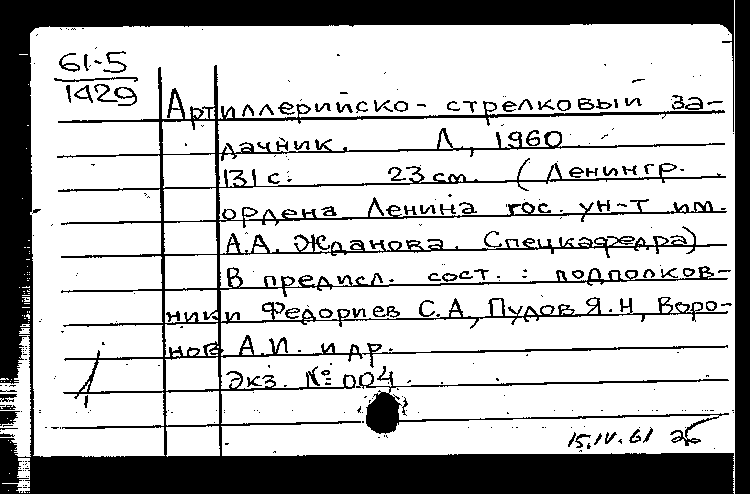 61-5
1429
Артиллерийско-стрелковый за-
дачник. Л., 1960
131 с. 23 см. (Ленингр.
ордена Ленина гос. ун-т им.
А.А. Жданова. Спецкафедра)
В предисл. сост.: подполков-
ники Федориев С.А, Пудов Я.Н, Воро-
нов А.И. и др.
Экз. № 004.
1
15.IV.61